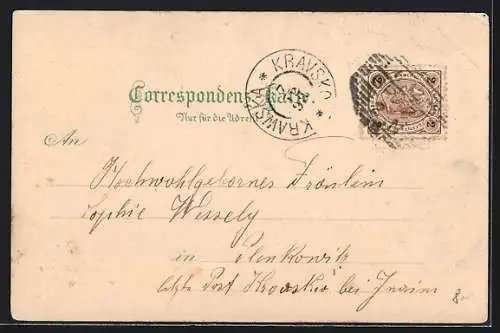 Correspondenz-Karte
KRAVSKO * KRAWSKA *
Nur für die Adresse
An
Hochwohlgebornes Fräulein
Sophie Wessely
in Plenkowitz
letzte Post Krawska bei Znaim
8